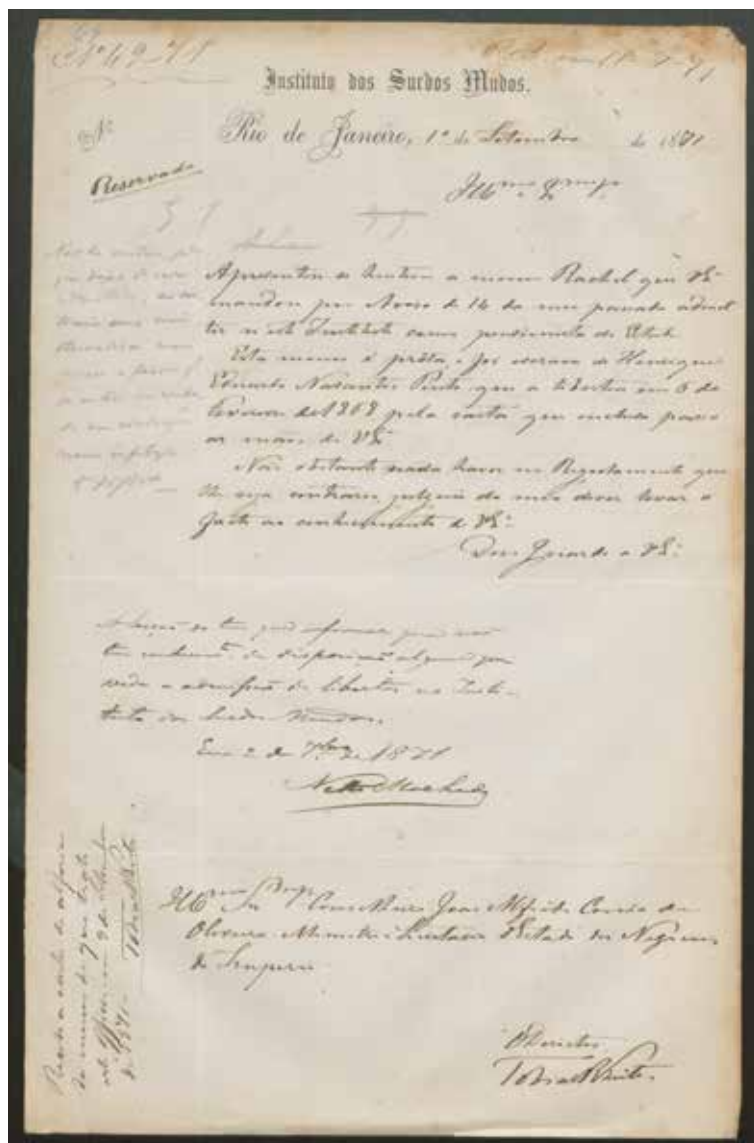 Nº 49-71
Instituto dos Surdos Mudos.
Nº
Rio de Janeiro, 1º de Setembro de 1871
Reservado
Illmo Exmo Sr.
Apresentou se hontem a menor Rachel que VEª
mandou por Aviso de 14 do mez passado admit
tir n'este Instituto como pensionista do Estado
Esta menor é preta e foi escrava de Henrique
Eduardo Nascentes Pinto que a libertou em 5 de
Fevereiro de 1868 pela carta que incluo passo
as mãos de VEª
Não obstante nada haver no Regulamento que
lhe seja contrario, julguei do meu dever levar o
facto ao conhecimento de VEª
Deos Guarde a VEª
A Secção só tem que informar que não
tem conhecimto de disposição alguma que
vede a admissão de libertos no Insti-
tuto dos Surdos Mudos.
Em 2 de 7bro de 1871
Netto Machado
Illmo Exmo Sr Conselheiro João Alfredo Corrêa de
Oliveira Ministro e Secretario d'Estado dos Negocios
do Imperio
O Director
Tobias Leite
Recebi a carta de alforria
da menor de que trata
este Officio em 9 de Setembro
de 1871
Tobias Leite